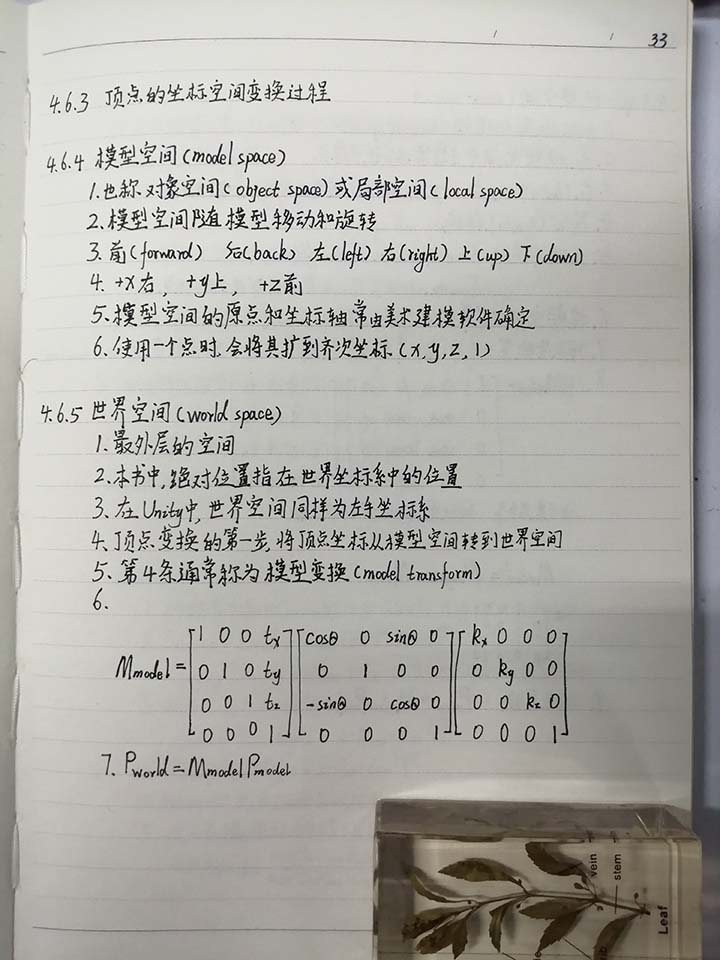 33
4.6.3 顶点的坐标空间变换过程
4.6.4 模型空间(model space)
1.也称对象空间(object space)或局部空间(local space)
2.模型空间随模型移动和旋转
3.前(forward) 后(back) 左(left) 右(right) 上(up) 下(down)
4. +x右, +y上, +z前
5.模型空间的原点和坐标轴常由美术建模软件确定
6.使用一个点时,会将其扩到齐次坐标(x,y,z,1)
4.6.5 世界空间(world space)
1.最外层的空间
2.本书中,绝对位置指在世界坐标系中的位置
3.在Unity中,世界空间同样为左手坐标系
4.顶点变换的第一步,将顶点坐标从模型空间转到世界空间
5.第4条通常称为模型变换(model transform)
6.
1 0 0 tx cosθ 0 sinθ 0 kx 0 0 0
Mmodel= 0 1 0 ty 0 1 0 0 0 ky 0 0
0 0 1 tz -sinθ 0 cosθ 0 0 0 kz 0
0 0 0 1 0 0 0 1 0 0 0 1
7. Pworld=MmodelPmodel
vein
stem
Leaf